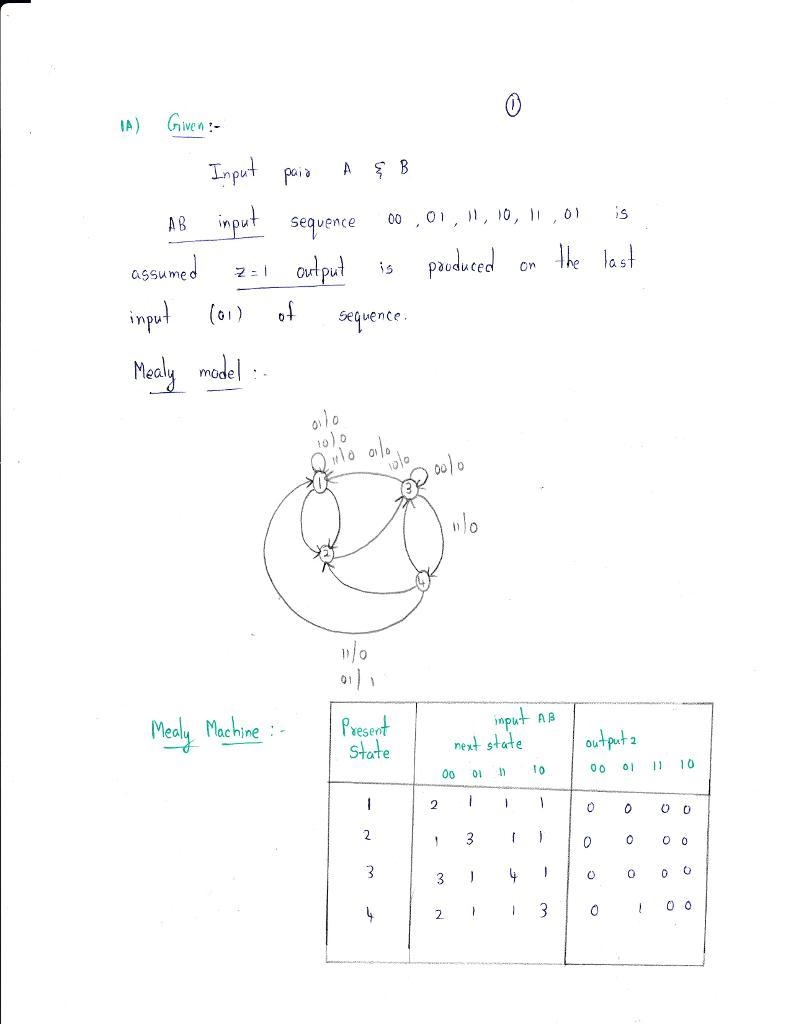 ①
1A) Given :-
Input pair A & B
AB input sequence 00 , 01 , 11 , 10 , 11 , 01 is
assumed z = 1 output is produced on the last
input (01) of sequence.
Mealy model :-
01/0
10/0
11/0 01/0
10/0 00/0
1 3
11/0
2
4
11/0
01/1
Mealy Machine :- Present State
input AB
next state output z
00 01 11 10 00 01 11 10
1 2 1 1 1 0 0 0 0
2 1 3 1 1 0 0 0 0
3 3 1 4 1 0 0 0 0
4 2 1 1 3 0 1 0 0